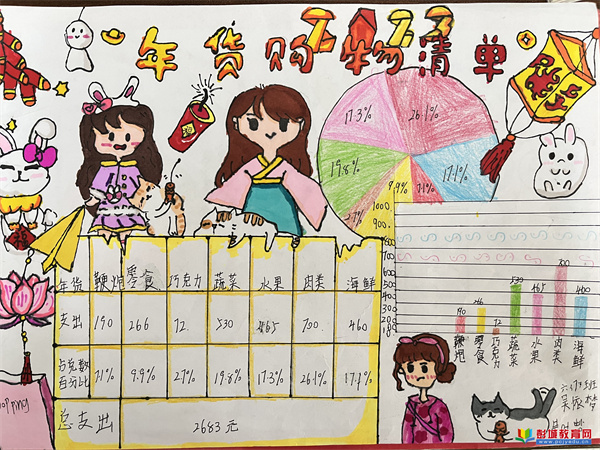 年货购物清单
17.3%
26.1%
19.8%
17.1%
9.9%
7.1%
2.7%
年货 鞭炮 零食 巧克力 蔬菜 水果 肉类 海鲜
支出 190 266 72 530 465 700 460
占总数百分比 7.1% 9.9% 2.7% 19.8% 17.3% 26.1% 17.1%
总支出 2683元
1000
900
800
700
600
500
400
300
200
100
190 266 72 530 465 700 460
鞭炮 零食 巧克力 蔬菜 水果 肉类 海鲜
opping
彭城教育网